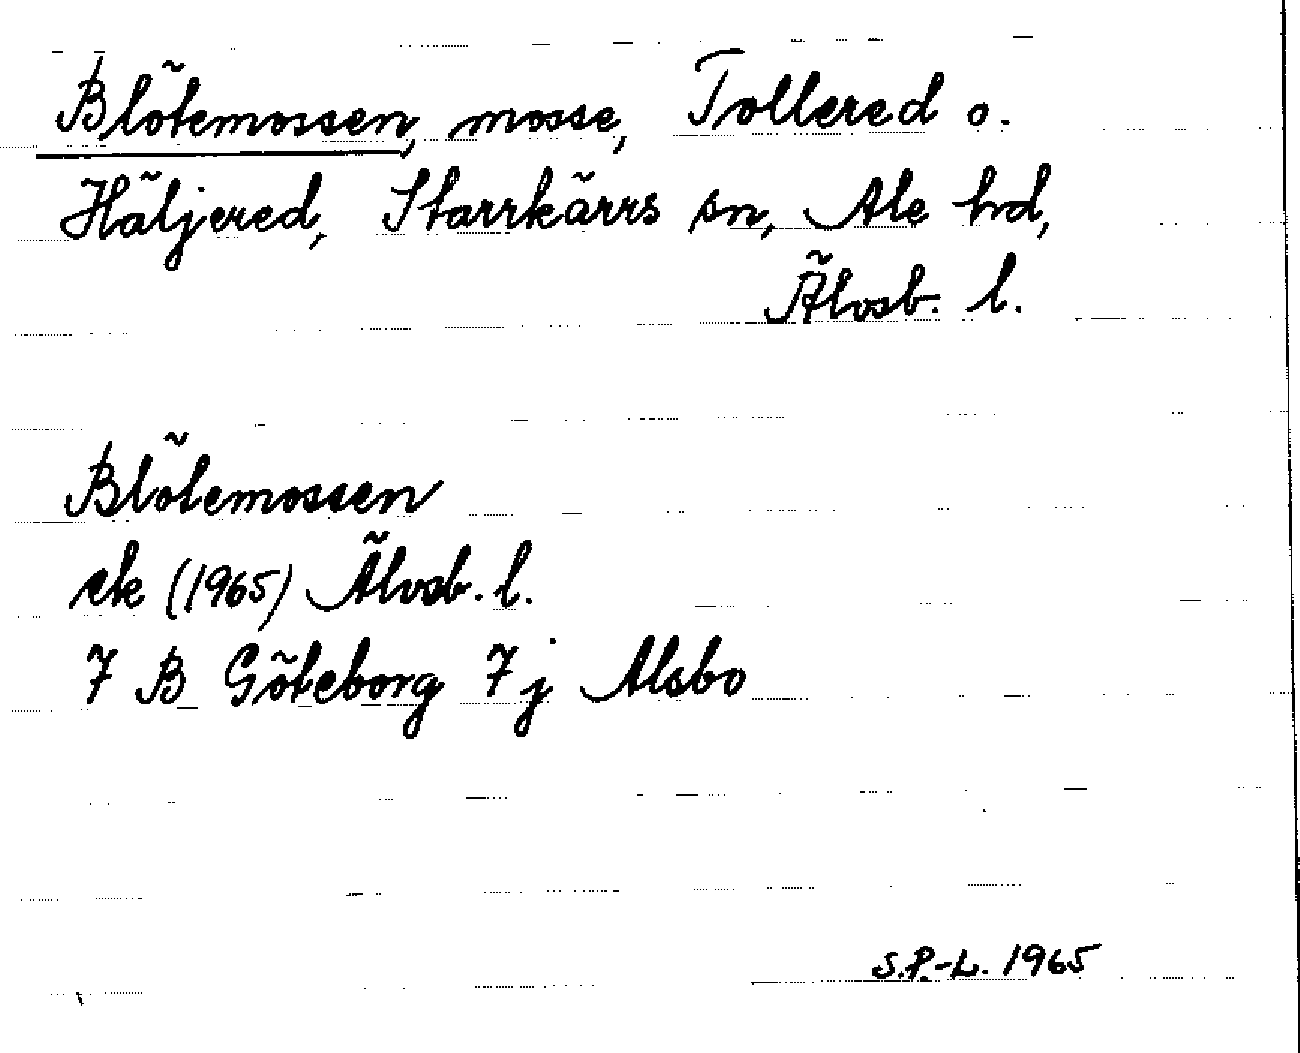 Blötemossen, mosse, Tollered o.
Häljered, Starrkärrs sn, Ale hd,
Älvsb. l.
Blötemossen
ek (1965) Älvsb. l.
7 B Göteborg 7 j Alsbo
S.P.-L. 1965